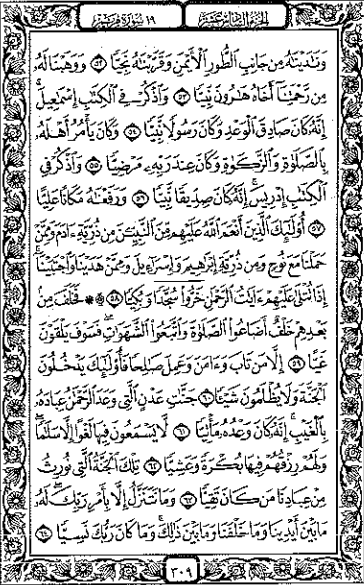 الجزء السادس عشر
١٩ سورة مريم
وَنَٰدَيْنَٰهُ مِن جَانِبِ ٱلطُّورِ ٱلْأَيْمَنِ وَقَرَّبْنَٰهُ نَجِيًّا ٥٢ وَوَهَبْنَا لَهُۥ
مِن رَّحْمَتِنَآ أَخَاهُ هَٰرُونَ نَبِيًّا ٥٣ وَٱذْكُرْ فِى ٱلْكِتَٰبِ إِسْمَٰعِيلَ
إِنَّهُۥ كَانَ صَادِقَ ٱلْوَعْدِ وَكَانَ رَسُولًا نَّبِيًّا ٥٤ وَكَانَ يَأْمُرُ أَهْلَهُۥ
بِٱلصَّلَوٰةِ وَٱلزَّكَوٰةِ وَكَانَ عِندَ رَبِّهِۦ مَرْضِيًّا ٥٥ وَٱذْكُرْ فِى
ٱلْكِتَٰبِ إِدْرِيسَ إِنَّهُۥ كَانَ صِدِّيقًا نَّبِيًّا ٥٦ وَرَفَعْنَٰهُ مَكَانًا عَلِيًّا
٥٧ أُو۟لَٰٓئِكَ ٱلَّذِينَ أَنْعَمَ ٱللَّهُ عَلَيْهِم مِّنَ ٱلنَّبِيِّـۧنَ مِن ذُرِّيَّةِ ءَادَمَ وَمِمَّنْ
حَمَلْنَا مَعَ نُوحٍ وَمِن ذُرِّيَّةِ إِبْرَٰهِيمَ وَإِسْرَٰٓءِيلَ وَمِمَّنْ هَدَيْنَا وَٱجْتَبَيْنَآ
إِذَا تُتْلَىٰ عَلَيْهِمْ ءَايَٰتُ ٱلرَّحْمَٰنِ خَرُّوا۟ سُجَّدًا وَبُكِيًّا ۩ ٥٨ ۞ فَخَلَفَ مِنۢ
بَعْدِهِمْ خَلْفٌ أَضَاعُوا۟ ٱلصَّلَوٰةَ وَٱتَّبَعُوا۟ ٱلشَّهَوَٰتِ فَسَوْفَ يَلْقَوْنَ
غَيًّا ٥٩ إِلَّا مَن تَابَ وَءَامَنَ وَعَمِلَ صَٰلِحًا فَأُو۟لَٰٓئِكَ يَدْخُلُونَ
ٱلْجَنَّةَ وَلَا يُظْلَمُونَ شَيْـًٔا ٦٠ جَنَّٰتِ عَدْنٍ ٱلَّتِى وَعَدَ ٱلرَّحْمَٰنُ عِبَادَهُۥ
بِٱلْغَيْبِ إِنَّهُۥ كَانَ وَعْدُهُۥ مَأْتِيًّا ٦١ لَّا يَسْمَعُونَ فِيهَا لَغْوًا إِلَّا سَلَٰمًا
وَلَهُمْ رِزْقُهُمْ فِيهَا بُكْرَةً وَعَشِيًّا ٦٢ تِلْكَ ٱلْجَنَّةُ ٱلَّتِى نُورِثُ
مِنْ عِبَادِنَا مَن كَانَ تَقِيًّا ٦٣ وَمَا نَتَنَزَّلُ إِلَّا بِأَمْرِ رَبِّكَ لَهُۥ
مَا بَيْنَ أَيْدِينَا وَمَا خَلْفَنَا وَمَا بَيْنَ ذَٰلِكَ وَمَا كَانَ رَبُّكَ نَسِيًّا ٦٤
٣٠٩